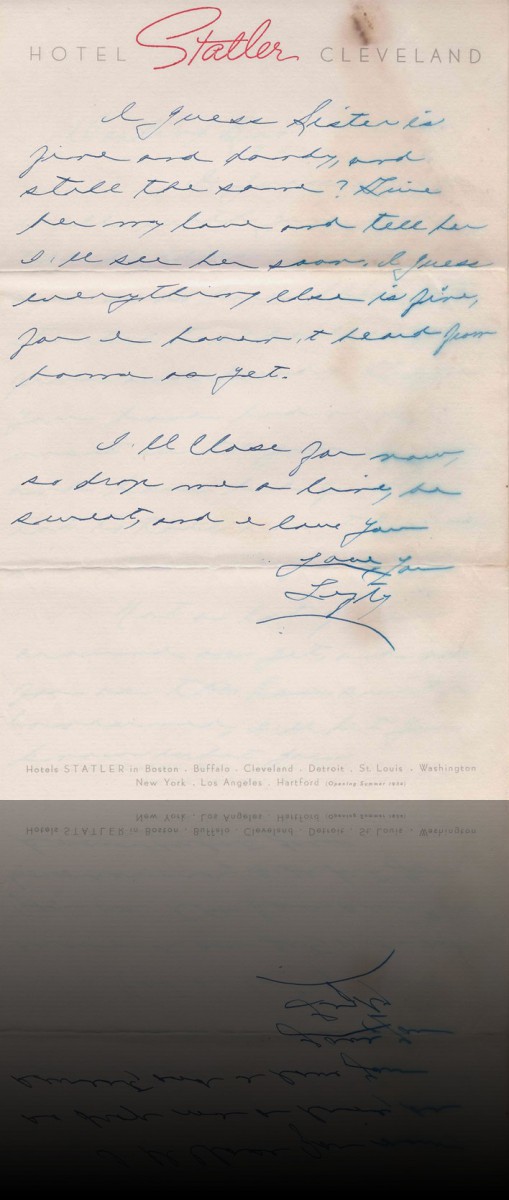 HOTEL Statler CLEVELAND
I guess Sister is
fine and dandy, and
still the same? Give
her my love and tell her
I'll see her soon. I guess
everything else is fine,
for I haven't heard from
home as yet.
I'll close for now,
so drop me a line, be
sweet, and I love you
Love You
Lefty
Hotels STATLER in Boston . Buffalo . Cleveland . Detroit . St. Louis . Washington
New York . Los Angeles . Hartford (Opening Summer 1954)